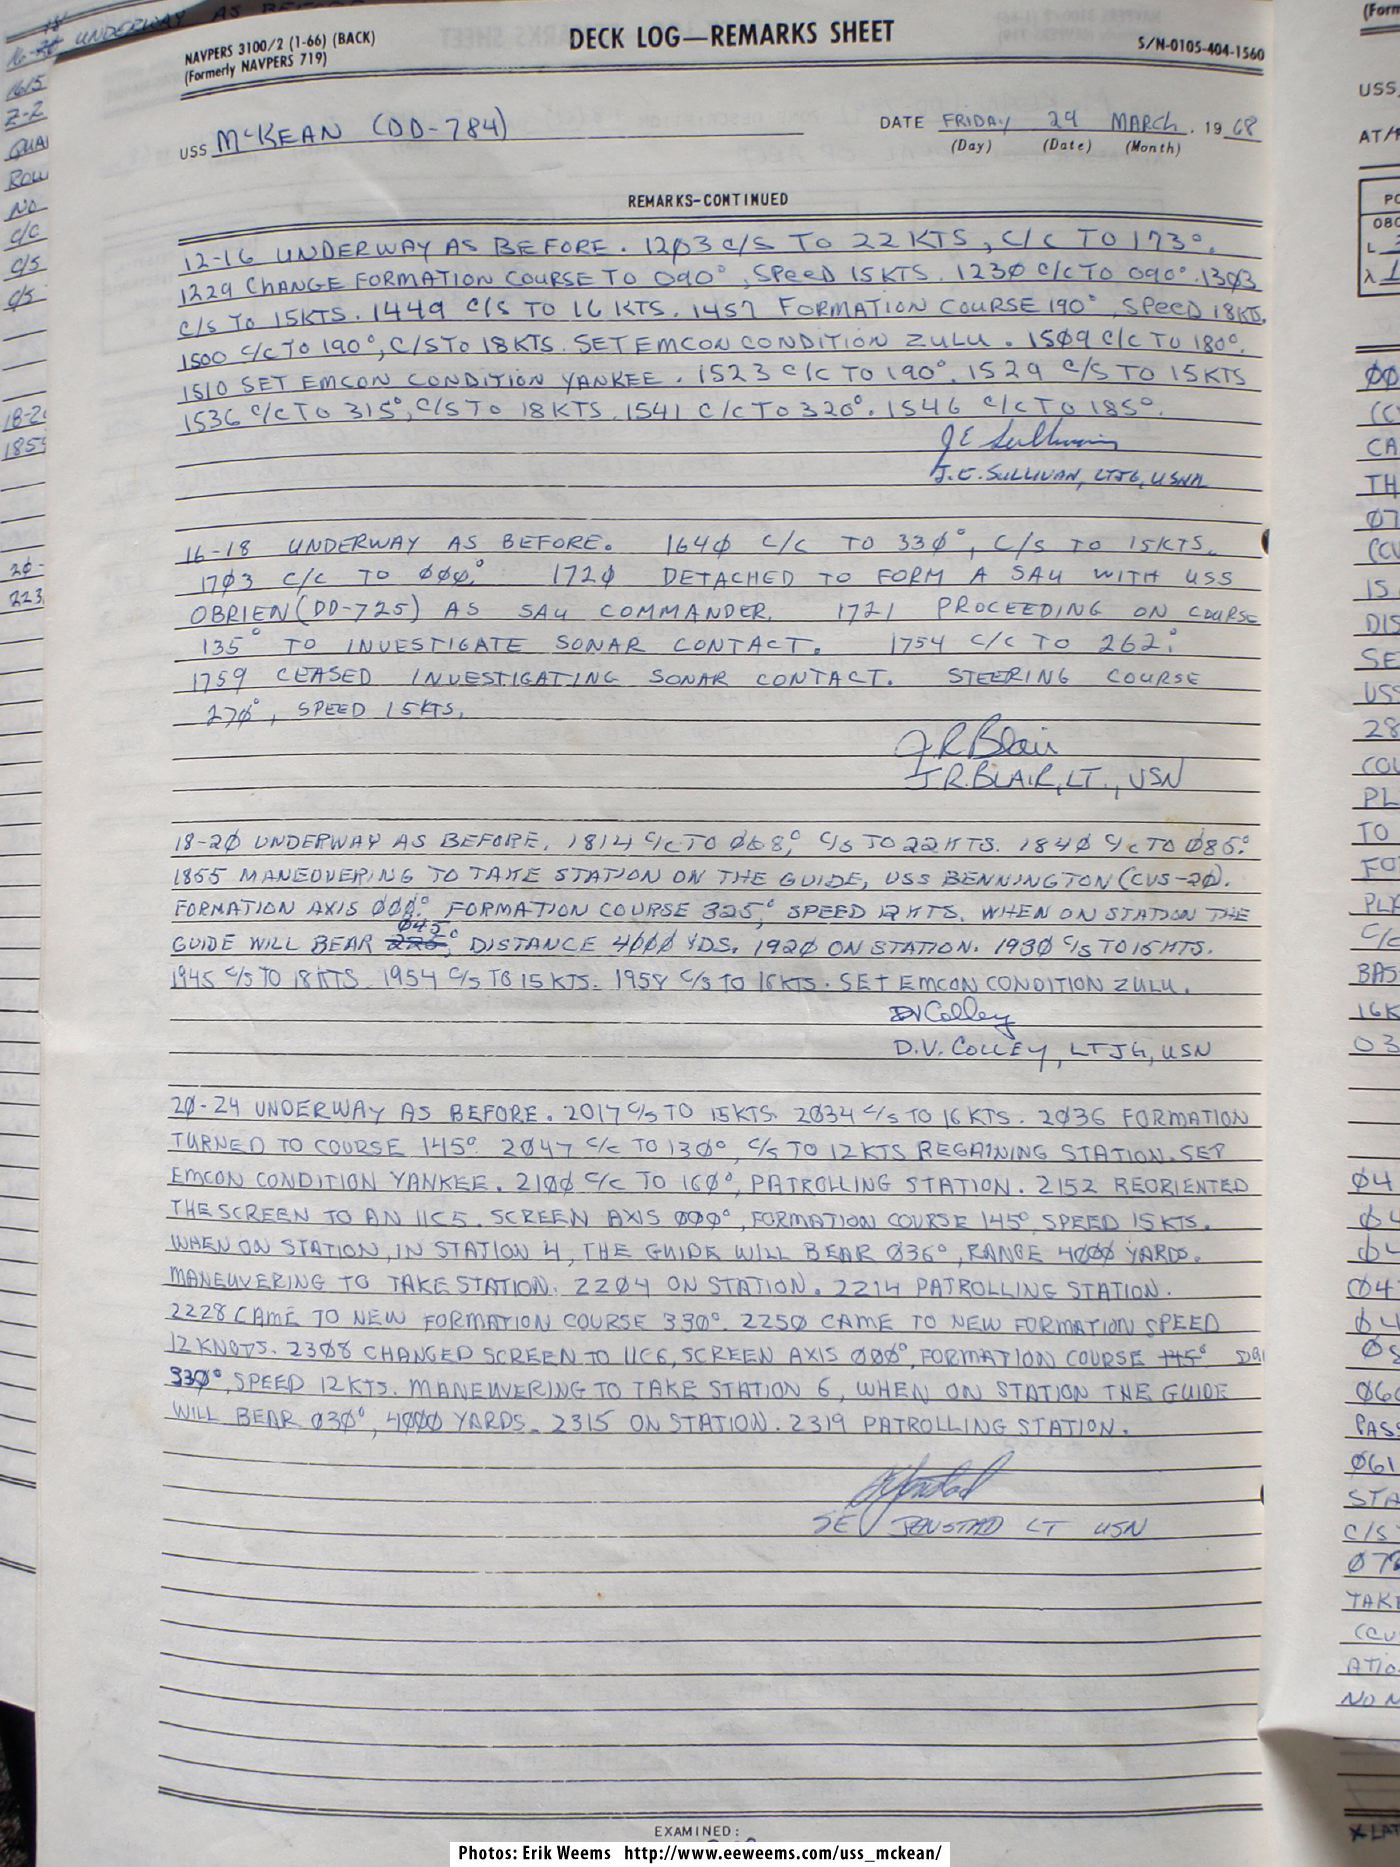 NAVPERS 3100/2 (1-66) (BACK)
(Formerly NAVPERS 719)
DECK LOG—REMARKS SHEET
S/N-0105-404-1560
USS McKEAN (DD-784)
DATE FRIDAY 29 MARCH, 1968
(Day) (Date) (Month)
REMARKS-CONTINUED
12-16 UNDERWAY AS BEFORE. 12Ø3 C/S TO 22 KTS, C/C TO 173°.
1229 CHANGE FORMATION COURSE TO 090°, SPEED 15KTS. 123Ø C/C TO 090°. 13Ø3
C/S TO 15KTS. 1449 C/S TO 16 KTS. 1457 FORMATION COURSE 190°, SPEED 18KTS.
1500 C/C TO 190°, C/S TO 18KTS. SET EMCON CONDITION ZULU. 15Ø9 C/C TO 180°.
1510 SET EMCON CONDITION YANKEE. 1523 C/C TO 190°. 1529 C/S TO 15KTS
1536 C/C TO 315°, C/S TO 18KTS. 1541 C/C TO 320°. 1546 C/C TO 185°.
J.E. SULLIVAN, LTJG, USNR
16-18 UNDERWAY AS BEFORE. 164Ø C/C TO 33Ø°, C/S TO 15KTS.
17Ø3 C/C TO ØØØ°. 172Ø DETACHED TO FORM A SAU WITH USS
OBRIEN (DD-725) AS SAU COMMANDER. 1721 PROCEEDING ON COURSE
135° TO INVESTIGATE SONAR CONTACT. 1754 C/C TO 262°.
1759 CEASED INVESTIGATING SONAR CONTACT. STEERING COURSE
27Ø°, SPEED 15KTS.
JR Blair
J.R. BLAIR, LT., USN
18-2Ø UNDERWAY AS BEFORE. 1814 C/C TO Ø68°, C/S TO 22KTS. 184Ø C/C TO Ø85°.
1855 MANEUVERING TO TAKE STATION ON THE GUIDE, USS BENNINGTON (CVS-2Ø).
FORMATION AXIS ØØØ°. FORMATION COURSE 325°, SPEED 12KTS. WHEN ON STATION THE
GUIDE WILL BEAR Ø45°, DISTANCE 4ØØØ YDS. 192Ø ON STATION. 193Ø C/S TO 15KTS.
1945 C/S TO 18KTS. 1954 C/S TO 15 KTS. 1958 C/S TO 16KTS. SET EMCON CONDITION ZULU.
DV Colley
D.V. COLLEY, LTJG, USN
2Ø-24 UNDERWAY AS BEFORE. 2017 C/S TO 15KTS. 2Ø34 C/S TO 16 KTS. 2Ø36 FORMATION
TURNED TO COURSE 145°. 2Ø47 C/C TO 13Ø°, C/S TO 12KTS REGAINING STATION. SET
EMCON CONDITION YANKEE. 21ØØ C/C TO 16Ø°, PATROLLING STATION. 2152 REORIENTED
THE SCREEN TO AN 11C5. SCREEN AXIS ØØØ°, FORMATION COURSE 145°, SPEED 15KTS.
WHEN ON STATION, IN STATION 4, THE GUIDE WILL BEAR Ø36°, RANGE 4ØØØ YARDS.
MANEUVERING TO TAKE STATION. 22Ø4 ON STATION. 2214 PATROLLING STATION.
2228 CAME TO NEW FORMATION COURSE 330°. 225Ø CAME TO NEW FORMATION SPEED
12 KNOTS. 23Ø8 CHANGED SCREEN TO 11C6, SCREEN AXIS ØØØ°, FORMATION COURSE 145°
33Ø°, SPEED 12KTS. MANEUVERING TO TAKE STATION 6, WHEN ON STATION THE GUIDE
WILL BEAR Ø3Ø°, 4ØØØ YARDS. 2315 ON STATION. 2319 PATROLLING STATION.
LT USN
EXAMINED:
Photos: Erik Weems http://www.eeweems.com/uss_mckean/